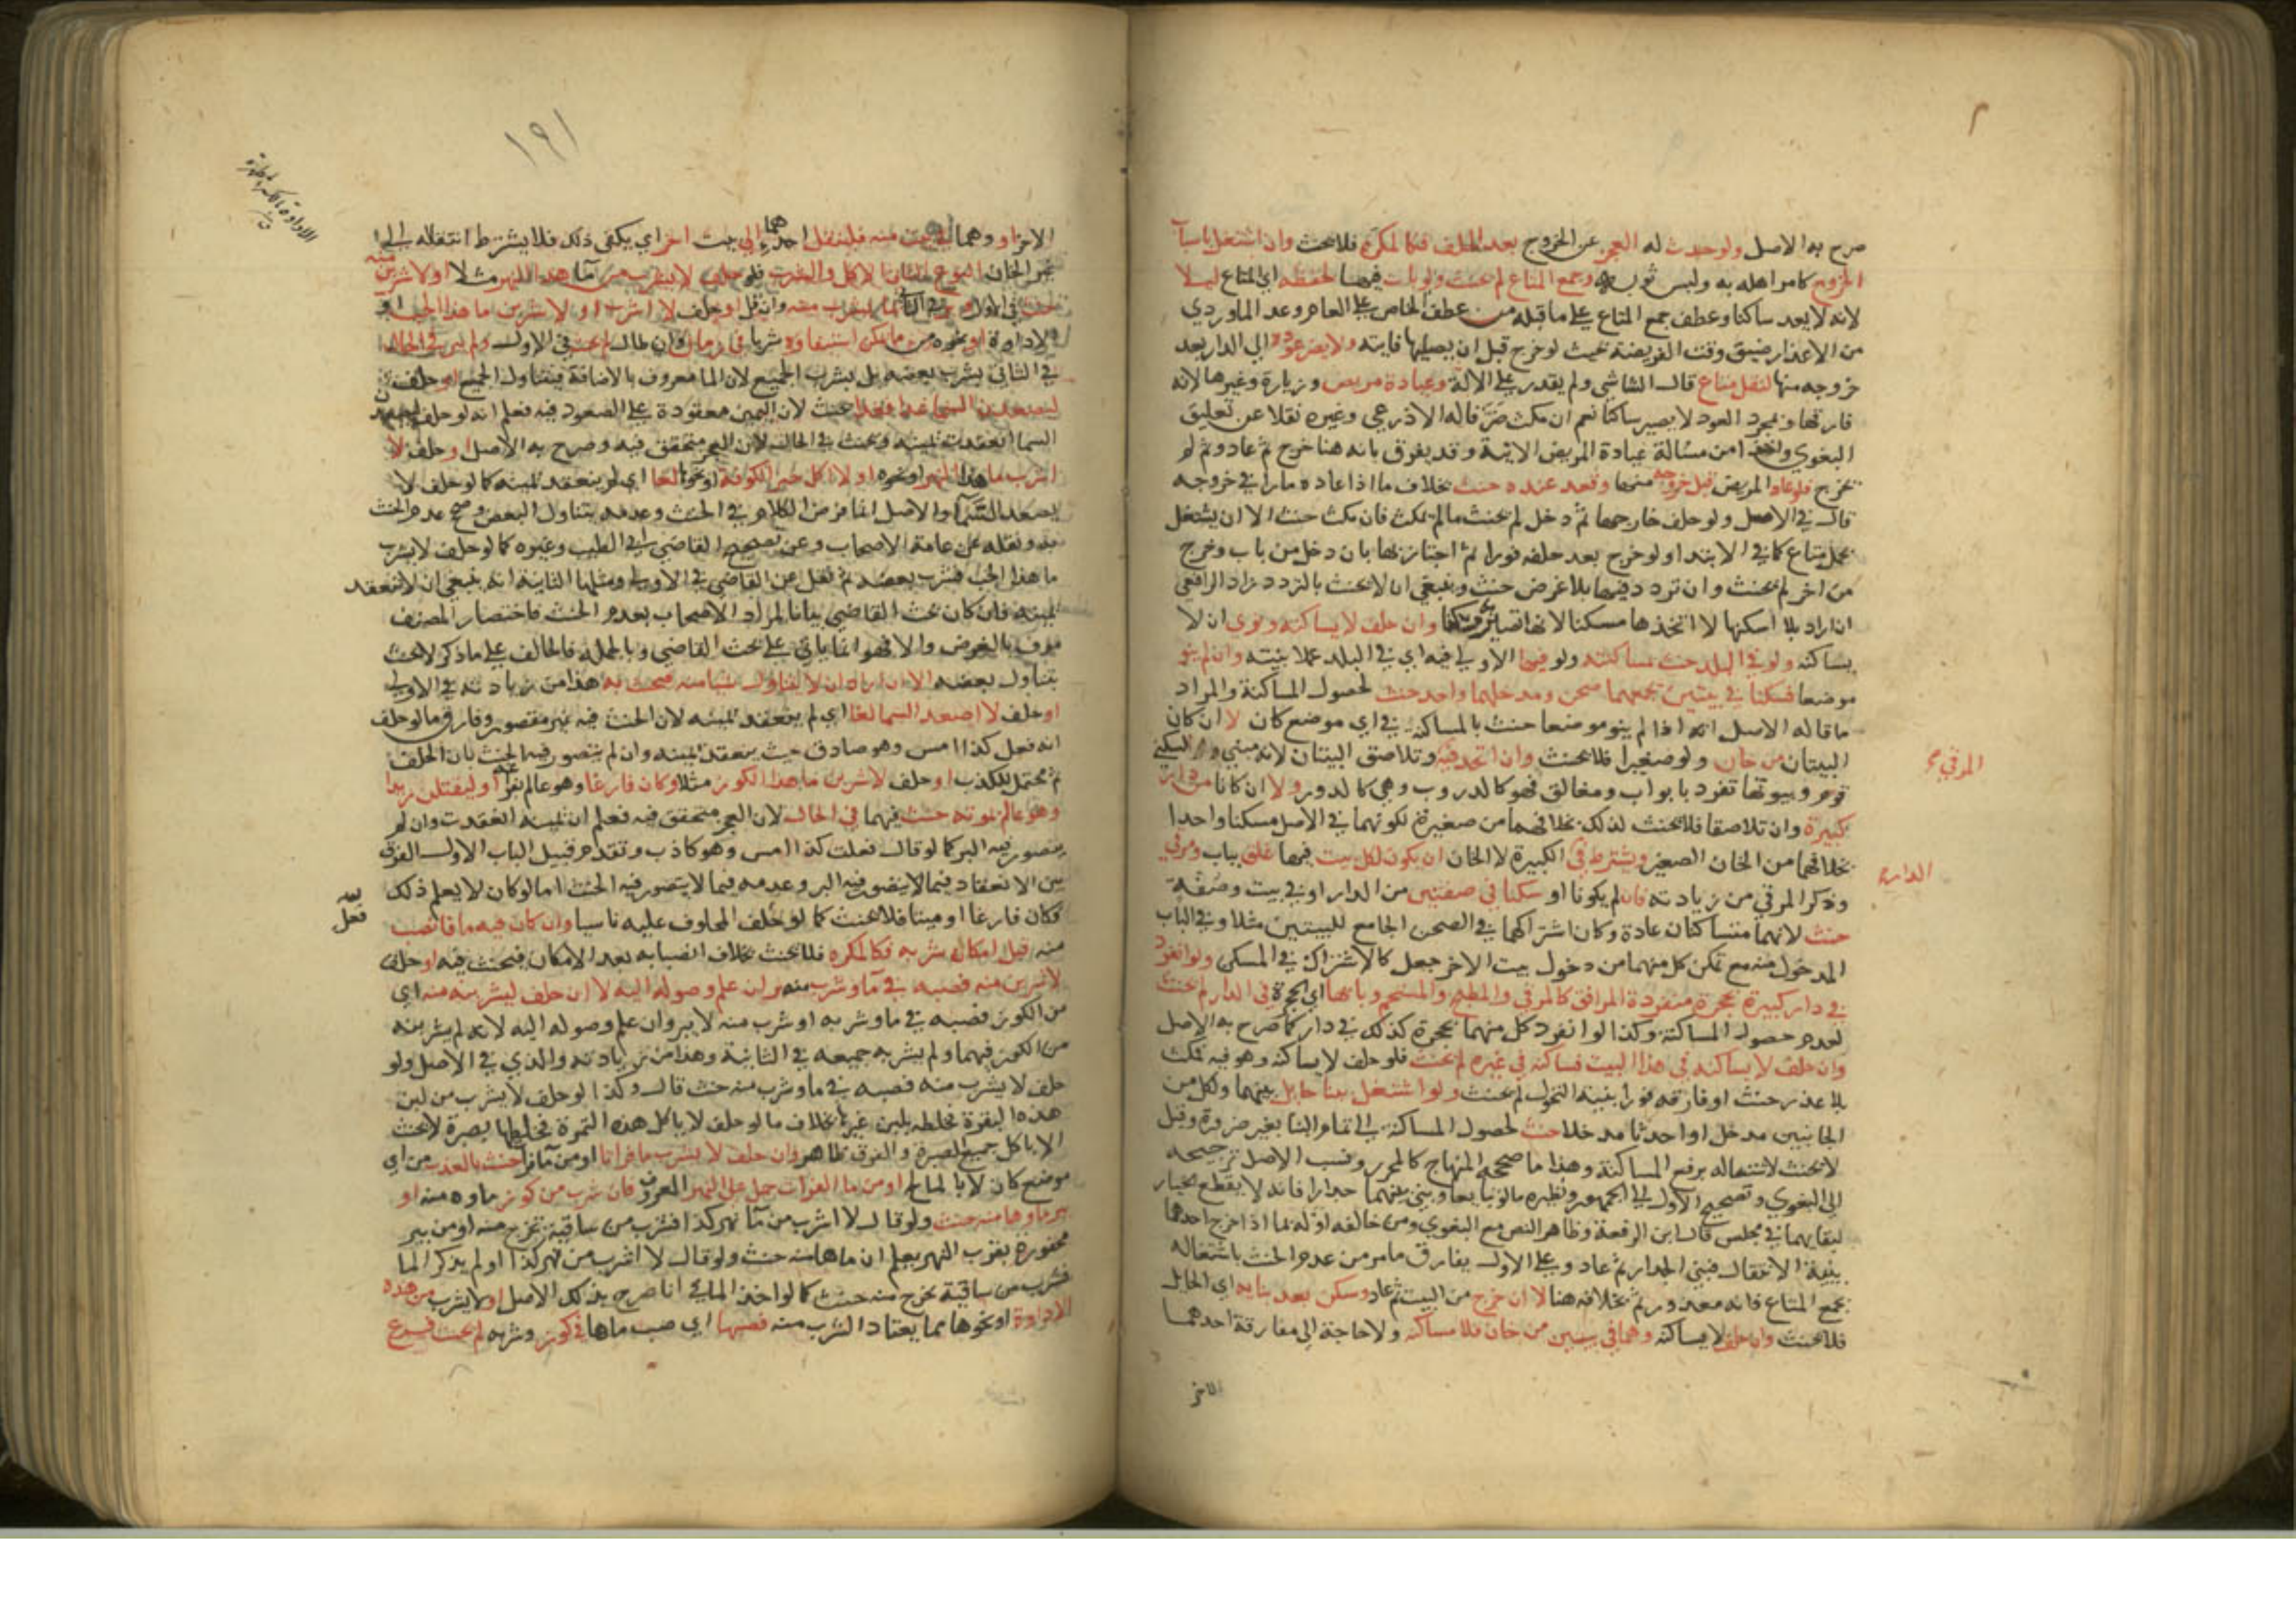 صرح به الاصل ولو حدث له العجز عن الخروج بعد الحلف فكالمكره فلا يحنث وان اشتغل باسباب
الخروج كامر اهله به ولبس ثوب وجمع المتاع لم يحنث ولو بات فيها لحفظه اي المتاع ليلا
لانه لا يعد ساكنا وعطف جمع المتاع على ما قبله من عطف الخاص على العام وعد الماوردي
من الاعذار ضيق وقت الفريضة بحيث لو خرج قبل ان يصليها فاتته ولا يضر عوده الى الدار بعد
خروجه منها لنقل متاع قال الشاشي ولم يقدر على الانابة وعيادة مريض وزيارة وغيرها لانه
فارقها وبمجرد العود لا يصير ساكنا نعم ان مكث ضر قاله الاذرعي وغيره نقلا عن تعليق
البغوي واخذا من مسالة عيادة المريض الاتية وقد يفرق بانه هنا خرج ثم عاد وثم لم
يخرج فلو عاد المريض قبل خروجه منها وقعد عنده حنث بخلاف ما اذا عاده مارا في خروجه
قال في الاصل ولو حلف خارجها ثم دخل لم يحنث ما لم يمكث فان مكث حنث الا ان يشتغل
بحمل متاع كما في الابتدا ولو خرج بعد حلفه فورا ثم اجتاز بها بان دخل من باب وخرج
من اخر لم يحنث وان تردد فيها بلا غرض حنث وينبغي ان لا يحنث بالتردد زاد الرافعي
ان اراد بلا اسكنها لا اتخذها مسكنا لانها لا تصير به مسكنا وان حلف لا يساكنه ونوى ان لا
يساكنه ولو في البلد حنث بمساكنته ولو فيها الاولى فيه اي في البلد عملا بنيته وان لم ينو
موضعا فسكنا في بيتين يجمعهما صحن ومدخلهما واحد حنث لحصول المساكنة والمراد
ما قاله الاصل انه اذا لم ينو موضعا حنث بالمساكنة في اي موضع كان لا ان كان
البيتان من خان ولو صغيرا فلا يحنث وان اتحد فيه وتلاصق البيتان لانه مبني لسكنى
قوم وبيوته تفرد بابواب ومغالق فهو كالدروب وهي كالدور ولا ان كانا من دار
كبيرة وان تلاصقا فلا يحنث لذلك بخلافهما من صغيرة لكونهما في الاصل مسكنا واحدا
بخلافهما من الخان الصغير ويشترط في الكبيرة لا الخان ان يكون لكل بيت فيها غلق بباب ومرقى
وذكر المرقى من زيادته فان لم يكونا او سكنا في صفتين من الدار او في بيت وصفة
حنث لانهما متساكنان عادة وكان اشتراكهما في الصحن الجامع للبيتين مثلا وفي الباب
المدخول منه مع تمكن كل منهما من دخول بيت الاخر جعل كالاشتراك في المسكن ولو انفرد
في دار كبيرة بحجرة منفردة المرافق كالمرقى والمطبخ والمستحم وبابها اي الحجرة في الدار لم يحنث
لعدم حصول المساكنة وكذا لو انفرد كل منهما بحجرة كذلك في دار كما صرح به الاصل
وان حلف لا يساكنه في هذا البيت فساكنه في غيره لم يحنث فلو حلف لا يساكنه وهو فيه فمكث
بلا عذر حنث او فارقه فورا بنية التحول لم يحنث ولو اشتغل ببنا حايل بينهما ولكل من
الجانبين مدخل او احدثا مدخلا حنث لحصول المساكنة الى تمام البنا بغير ضرورة وقيل
لا يحنث لاشتغاله برفع المساكنة وهذا ما صححه المنهاج كالمحرر ونسب الاصل ترجيحه
الى البغوي وتصحيح الاول الى الجمهور ونظيره ما لو تبايعا وبني بينهما جدار فانه لا يقطع الخيار
لبقايهما في مجلس قال ابن الرفعة وظاهر النص مع البغوي ومن خالفه اوله بما اذا خرج احدهما
بنية الانتقال فبني الجدار ثم عاد وعلى الاول يفارق ما مر من عدم الحنث باشتغاله
بجمع المتاع فانه معذور ثم بخلافه هنا لا ان خرج من البيت ثم عاد وسكن بعد بنايه اي الحايل
فلا يحنث وان حلف لا يساكنه وهما في بيتين من خان فلا مساكنة ولا حاجة الى مفارقة احدهما
الاخر
المرقى
الدار
١٩١
الاخر او وهما في بيت منه فلينتقل احدهما الى بيت اخر اي يكفي ذلك فلا يشترط انتقاله الى
غير الخان النوع الثاني الاكل والشرب فلو حلف لا يشرب من ما هذا النهر مثلا او لاشربن منه
حنث في الاول وبر في الثاني بما يشرب منه وان قل او حلف لا اشرب او لاشربن ما هذا الحب او
الاداوة او نحوه مما يمكن استيفاوه شربا في زمان وان طال لم يحنث في الاول ولم يبر في الحال
في الثاني بشرب بعضه بل بشرب الجميع لان الما معروف بالاضافة فيتناول الجميع او حلف
ليصعدن السما غدا فغدا يحنث لان اليمين معقودة على الصعود فيه فعلم انه لو حلف ليصعدن
السما انعقدت يمينه وحنث في الحال لان العجز متحقق فيه وصرح به الاصل او حلف لا
اشرب ما هذا النهر او نحوه او لا اكل خبز الكوفة او نحوها لغا اي لم ينعقد يمينه كما لو حلف لا
يصعد السما والاصل انما فرض الكلام في الحنث وعدمه بتناول البعض وصحح عدم الحنث
به ونقله عن عامة الاصحاب وعن تصحيح القاضي ابي الطيب وغيره كما لو حلف لا يشرب
ما هذا الحب فشرب بعضه ثم نقل عن القاضي في الاولى ومثلها الثانية انه ينبغي ان لا تنعقد
يمينه فان كان بحث القاضي بيانا لمراد الاصحاب بعدم الحنث فاختصار المصنف
موف بالغرض والا فهو انما ياتي على بحث القاضي وبالجملة فالحالف على ما ذكر لا يحنث
بتناول بعضه الا ان اراد ان لا يتناول شيا منه فيحنث به هذا من زيادته في الاولى
او حلف لا اصعد السما لغا اي لم ينعقد يمينه لان الحنث فيه غير متصور وفارق ما لو حلف
انه فعل كذا امس وهو صادق حيث ينعقد يمينه وان لم يتصور فيه الحنث بان الحلف
ثم محتمل للكذب او حلف لاشربن ما هذا الكوز مثلا وكان فارغا وهو عالم بفراغه او ليقتلن زيدا
وهو عالم بموته حنث فيهما في الحال لان العجز متحقق فيه فعلم ان يمينه انعقدت وان لم
يتصور فيه البر كما لو قال فعلت كذا امس وهو كاذب وتقدم قبيل الباب الاول الفرق
بين الانعقاد فيما لا يتصور فيه البر وعدمه فيما لا يتصور فيه الحنث اما لو كان لا يعلم ذلك
فكان فارغا او ميتا فلا يحنث كما لو حلف المحلوف عليه ناسيا وان كان فيه ما فانصب
منه قبل امكان شربه فكالمكره فلا يحنث بخلاف انصبابه بعد الامكان فيحنث فيه او حلف
لاشربن منه فصبه في ما وشرب منه بر ان علم وصوله اليه لا ان حلف ليشربنه منه اي
من الكوز فصبه في ما وشربه او شرب منه لا يبر وان علم وصوله اليه لانه لم يشربه
من الكوز فيهما ولم يشربه جميعه في الثانية وهذا من زيادته والذي في الاصل ولو
حلف لا يشرب منه فصبه في ما وشرب منه حنث قال وكذا لو حلف لا يشرب من لبن
هذه البقرة فخلطه بلبن غيرها بخلاف ما لو حلف لا ياكل هذه التمرة فخلطها بصبرة لا يحنث
الا باكل جميع الصبرة والفرق ظاهر وان حلف لا يشرب ما فراتا او من ما فرات حنث بالعذب من اي
موضع كان لا بالمالح او من ما الفرات حمل على النهر المعروف فان شرب من كوز ماوه منه او
بير ماوها منه حنث ولو قال لا اشرب من ما نهر كذا فشرب من ساقية تخرج منه او من بير
محفورة بقرب النهر يعلم ان ماها منه حنث ولو قال لا اشرب من نهر كذا ولم يذكر الما
فشرب من ساقية تخرج منه حنث كما لو اخذ الما في انا صرح بذلك الاصل او لا يشرب من هذه
الاداوة او نحوها مما يعتاد الشرب منه فصبها اي صب ماها في كوز وشربه لم يحنث فرع
فعل